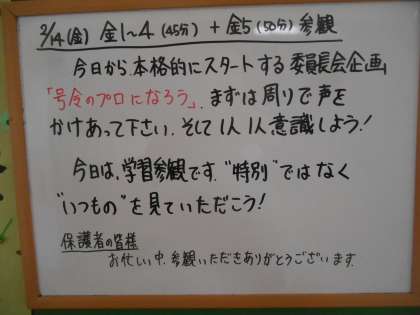 2/14(金) 金1〜4(45分)+金5(50分)参観
今日から本格的にスタートする委員長会企画
「号令のプロになろう」。まずは周りで声を
かけあって下さい。そして1人1人意識しよう！
今日は、学習参観です。"特別"ではなく
"いつもの"を見ていただこう！
保護者の皆様
お忙い中、参観いただきありがとうございます。